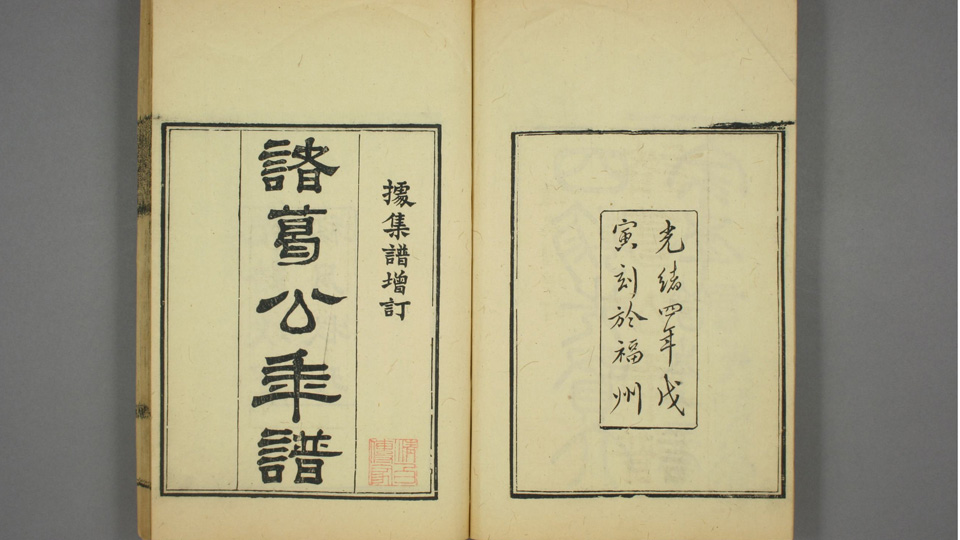 據集譜增訂
諸葛公年譜
光緒四年戊
寅刻於福州